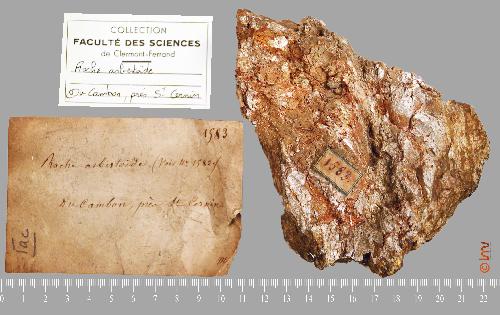 COLLECTION
FACULTÉ DES SCIENCES
de Clermont-Ferrand
Roche asbestoïde
Du Cambon, près St Cernin
1583
Roche asbestoïde (Voir No 1582)
Du Cambon, près St Cernin
Tac
1583
0 1 2 3 4 5 6 7 8 9 10 11 12 13 14 15 16 17 18 19 20 21 22